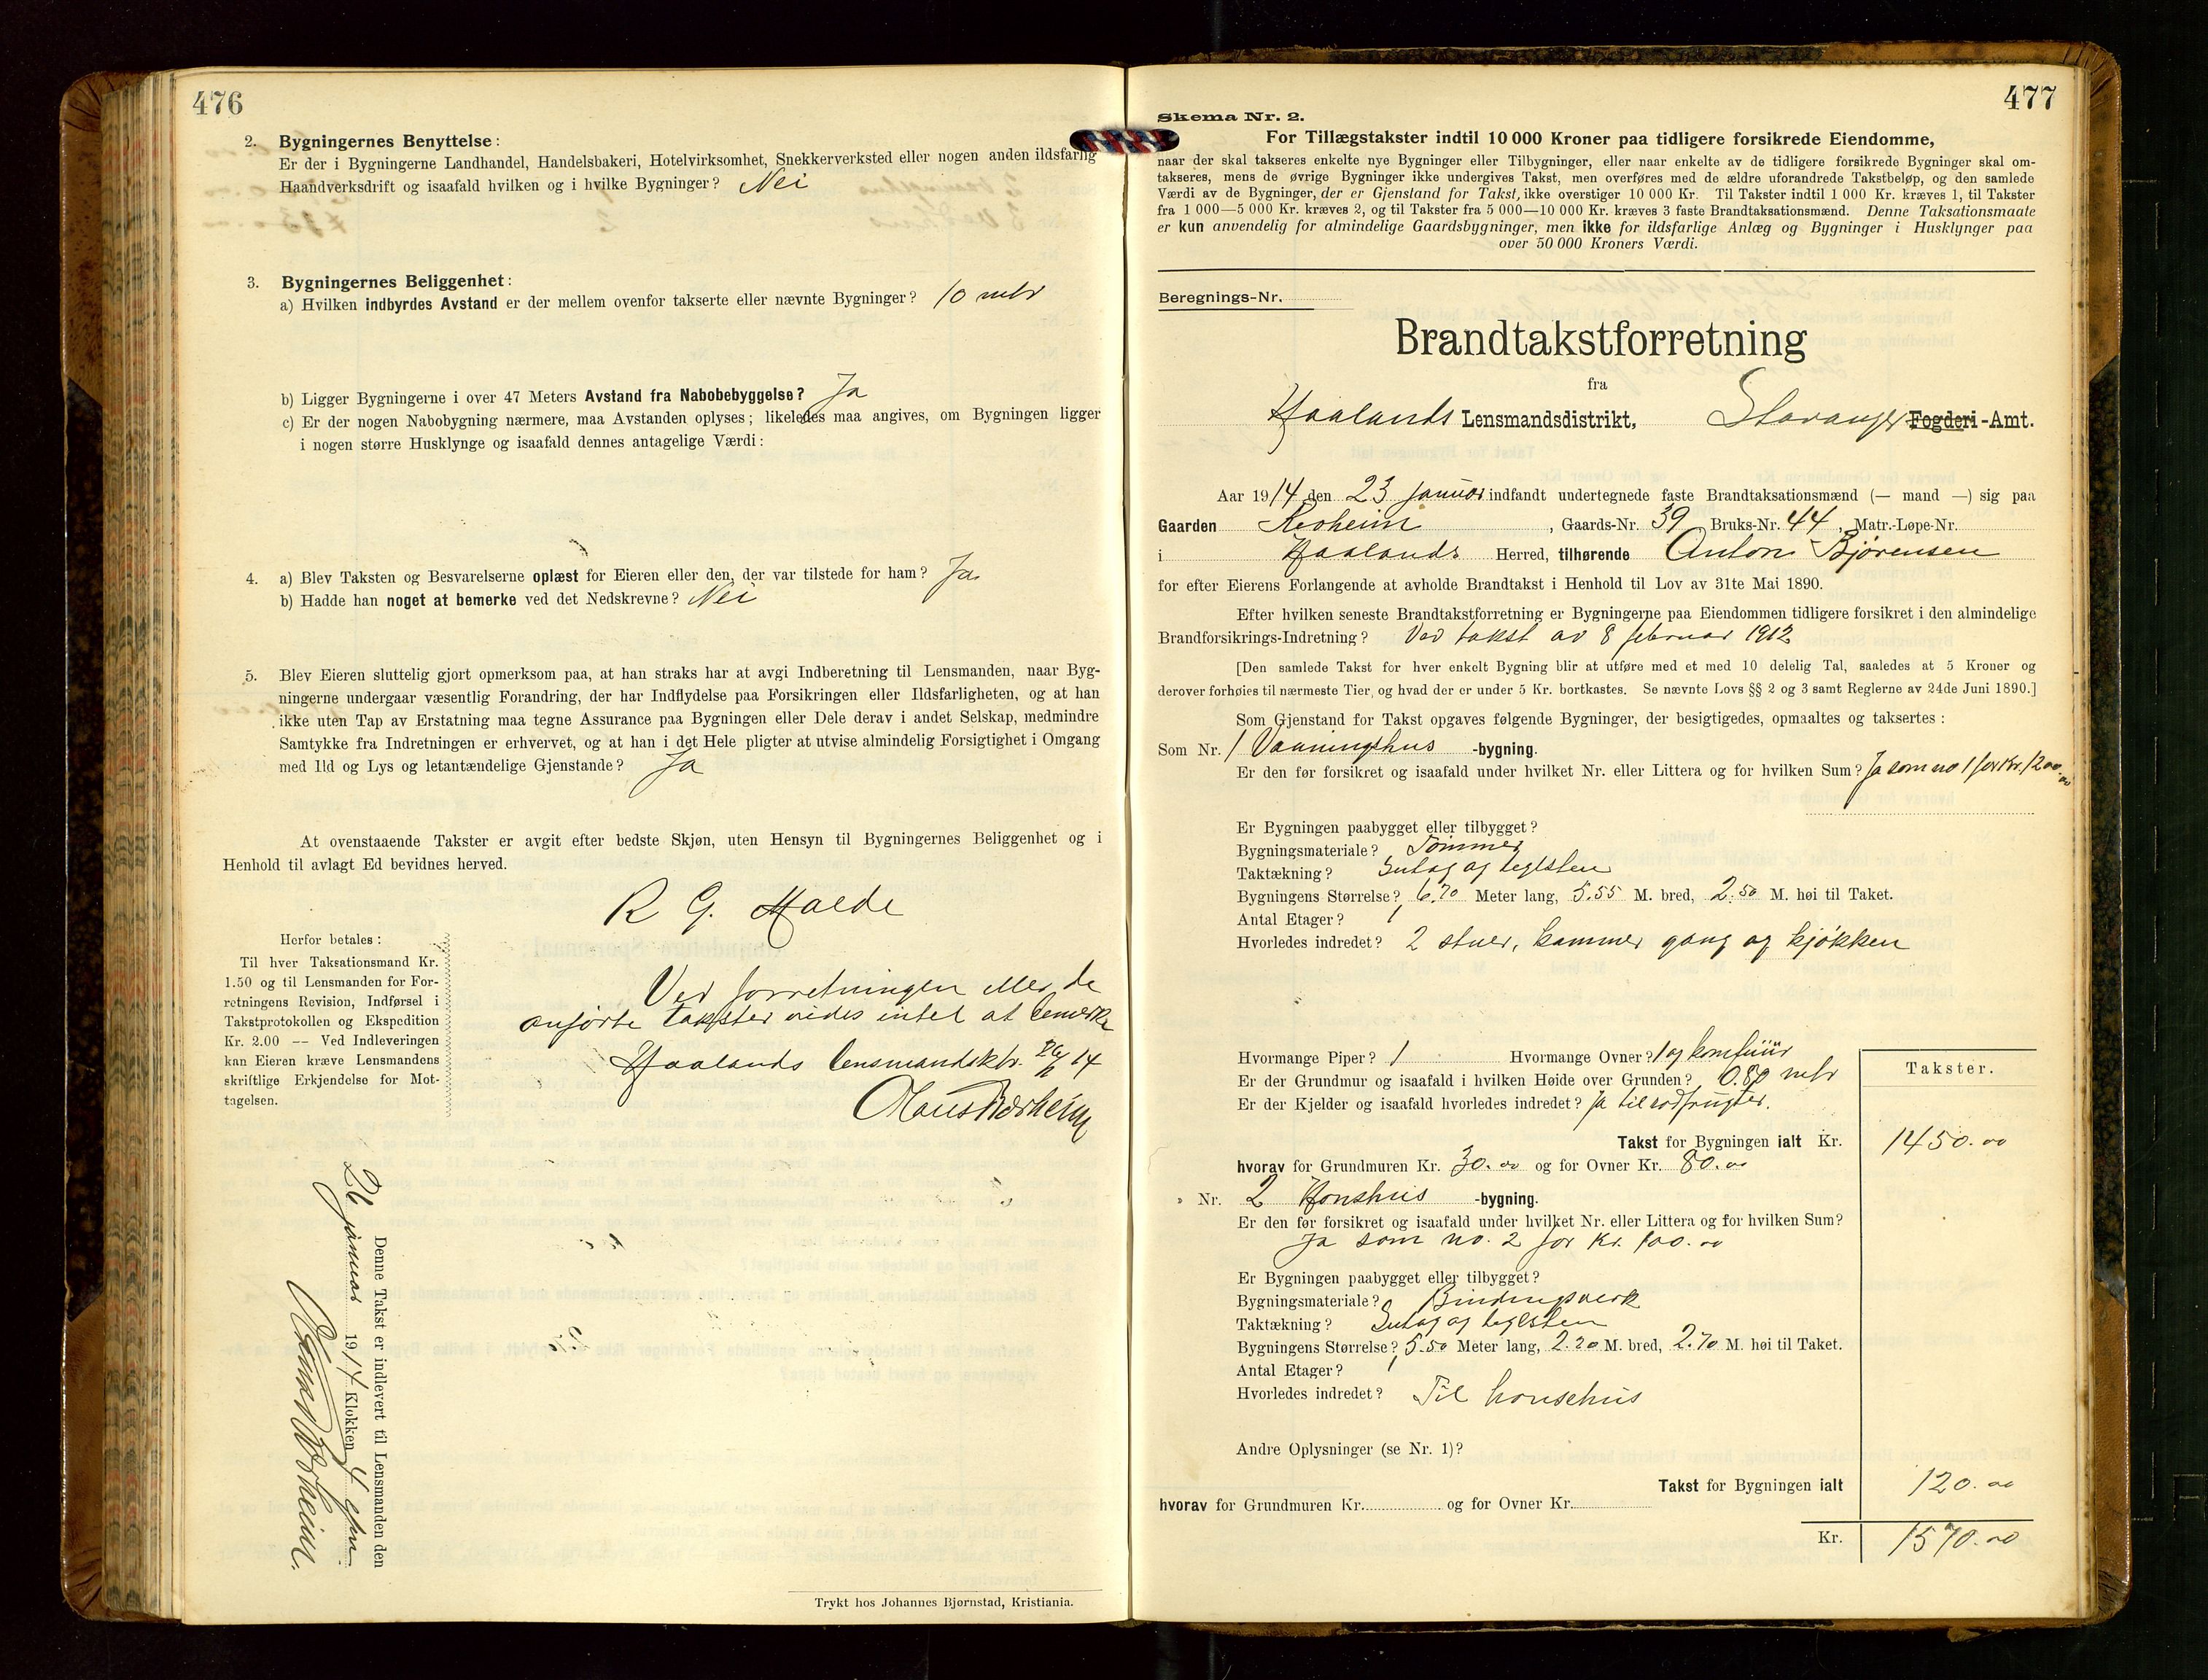 476
2. Bygningernes Benyttelse:
Er der i Bygningerne Landhandel, Handelsbakeri, Hotelvirksomhet, Snekkerverksted eller nogen anden ildsfarlig
Haandverksdrift og isaafald hvilken og i hvilke Bygninger? Nei
3. Bygningernes Beliggenhet:
a) Hvilken indbyrdes Avstand er der mellem ovenfor takserte eller nævnte Bygninger? 10 mtr
b) Ligger Bygningerne i over 47 Meters Avstand fra Nabobebyggelse? Ja
c) Er der nogen Nabobygning nærmere, maa Avstanden oplyses; likeledes maa angives, om Bygningen ligger
i nogen større Husklynge og isaafald dennes antagelige Værdi:
4. a) Blev Taksten og Besvarelserne oplæst for Eieren eller den, der var tilstede for ham? Ja
b) Hadde han noget at bemerke ved det Nedskrevne? Nei
5. Blev Eieren sluttelig gjort opmerksom paa, at han straks har at avgi Indberetning til Lensmanden, naar Byg-
ningerne undergaar væsentlig Forandring, der har Indflydelse paa Forsikringen eller Ildsfarligheten, og at han
ikke uten Tap av Erstatning maa tegne Assurance paa Bygningen eller Dele derav i andet Selskap, medmindre
Samtykke fra Indretningen er erhvervet, og at han i det Hele pligter at utvise almindelig Forsigtighet i Omgang
med Ild og Lys og letantændelige Gjenstande? Ja
At ovenstaaende Takster er avgit efter bedste Skjøn, uten Hensyn til Bygningernes Beliggenhet og i
Henhold til avlagt Ed bevidnes herved.
R G. Malde
Herfor betales:
Til hver Taksationsmand Kr.
1.50 og til Lensmanden for For-
retningens Revision, Indførsel i
Takstprotokollen og Ekspedition
Kr. 2.00 -- Ved Indleveringen
kan Eieren kræve Lensmandens
skriftlige Erkjendelse for Mot-
tagelsen.
Ved forretningen eller de
anførte takster vides intet at bemerke
Haalands lensmandsktr. 26/1 14
Denne Takst er indlevert til Lensmanden den
26 januar 1914 Klokken 4
Trykt hos Johannes Bjørnstad, Kristiania.
477
Skema Nr. 2.
For Tillægstakster indtil 10 000 Kroner paa tidligere forsikrede Eiendomme,
naar der skal takseres enkelte nye Bygninger eller Tilbygninger, eller naar enkelte av de tidligere forsikrede Bygninger skal om-
takseres, mens de øvrige Bygninger ikke undergives Takst, men overføres med de ældre uforandrede Takstbeløp, og den samlede
Værdi av de Bygninger, der er Gjenstand for Takst, ikke overstiger 10 000 Kr. Til Takster indtil 1 000 Kr. kræves 1, til Takster
fra 1 000—5 000 Kr. kræves 2, og til Takster fra 5 000—10 000 Kr. kræves 3 faste Brandtaksationsmænd. Denne Taksationsmaate
er kun anvendelig for almindelige Gaardsbygninger, men ikke for ildsfarlige Anlæg og Bygninger i Husklynger paa
over 50 000 Kroners Værdi.
Beregnings-Nr.
Brandtakstforretning
fra
Haalands Lensmandsdistrikt, Stavanger Fogderi-Amt.
Aar 1914 den 23 januar indfandt undertegnede faste Brandtaksationsmænd (— mand —) sig paa
Gaarden Revheim, Gaards-Nr. 39 Bruks-Nr. 44, Matr.-Løpe-Nr.
i Haalands Herred, tilhørende Anton Bjørensen
for efter Eierens Forlangende at avholde Brandtakst i Henhold til Lov av 31te Mai 1890.
Efter hvilken seneste Brandtakstforretning er Bygningerne paa Eiendommen tidligere forsikret i den almindelige
Brandforsikrings-Indretning? Ved takst av 8 februar 1912
[Den samlede Takst for hver enkelt Bygning blir at utføre med et med 10 delelig Tal, saaledes at 5 Kroner og
derover forhøies til nærmeste Tier, og hvad der er under 5 Kr. bortkastes. Se nævnte Lovs §§ 2 og 3 samt Reglerne av 24de Juni 1890.]
Som Gjenstand for Takst opgaves følgende Bygninger, der besigtigedes, opmaaltes og taksertes:
Som Nr. 1 Vaaningshus -bygning.
Er den før forsikret og isaafald under hvilket Nr. eller Littera og for hvilken Sum? Ja som no 1 for Kr. 1200.00
Er Bygningen paabygget eller tilbygget?
Bygningsmateriale? Tømmer
Taktækning? Sutag og teglsten
Bygningens Størrelse? 6.70 Meter lang, 5.55 M. bred, 2.50 M. høi til Taket.
Antal Etager? 1
Hvorledes indredet? 2 stuer, kammer gang og kjøkken
Hvormange Piper? 1 Hvormange Ovner? 1 og komfüür
Er der Grundmur og isaafald i hvilken Høide over Grunden? 0.80 mtr
Er der Kjelder og isaafald hvorledes indredet? Ja til rodfrugter.
Takster.
Takst for Bygningen ialt Kr. 1450.00
hvorav for Grundmuren Kr. 30.00 og for Ovner Kr. 80.00
» Nr. 2 Hønshus -bygning.
Er den før forsikret og isaafald under hvilket Nr. eller Littera og for hvilken Sum?
Ja som no. 2 for Kr. 100.00
Er Bygningen paabygget eller tilbygget?
Bygningsmateriale? Bindingsverk
Taktækning? Sutag og teglsten
Bygningens Størrelse? 5.50 Meter lang, 2.20 M. bred, 2.70 M. høi til Taket.
Antal Etager? 1
Hvorledes indredet? Til hønsehus
Andre Oplysninger (se Nr. 1)?
Takst for Bygningen ialt 120.00
hvorav for Grundmuren Kr. og for Ovner Kr.
Kr. 1570.00